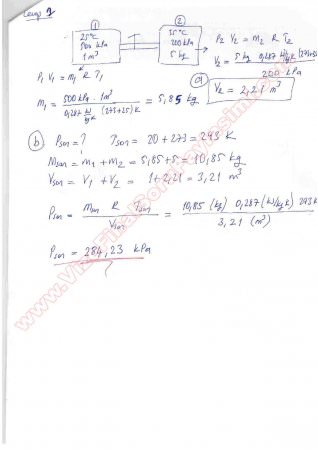 Cevap 1
① ②
25°C
500 kPa
1 m³
35°C
200 kPa
5 kg
P₂ V₂ = m₂ R T₂
P₁ V₁ = m₁ R T₁
V₂ = 5 kg 0,287 kJ/kg K (273+35)K
200 kPa
ⓐ V₂ = 2,21 m³
m₁ = 500 kPa . 1 m³ = 5,85 kg
0,287 kJ/kg K (273+25) K
ⓑ Pson = ? Tson = 20 + 273 = 293 K
Mson = m₁ + m₂ = 5,85 + 5 = 10,85 kg
Vson = V₁ + V₂ = 1 + 2,21 = 3,21 m³
Pson = mson R Tson = 10,85 (kg) 0,287 (kJ/kg K) 293 K
Vson 3,21 (m³)
Pson = 284,23 kPa